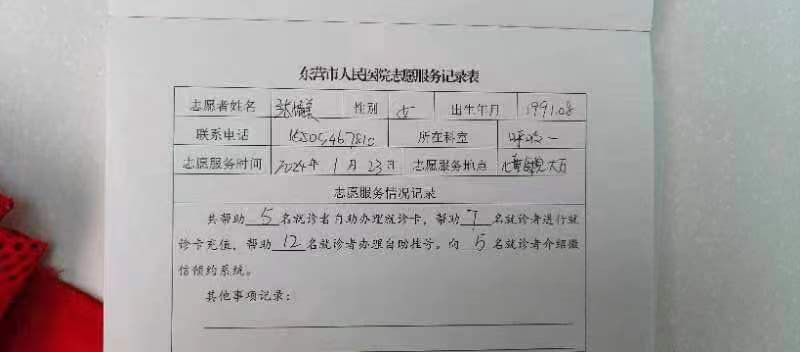 东营市人民医院志愿服务记录表
志愿者姓名 性别 女 出生年月 1991.08
联系电话 所在科室 呼吸一
志愿服务时间 2024年 1月 23日 志愿服务地点
志愿服务情况记录
共帮助 5 名就诊者自助办理就诊卡，帮助 7 名就诊者进行就
诊卡充值，帮助 12 名就诊者办理自助挂号。向 5 名就诊者介绍微
信预约系统。
其他事项记录：